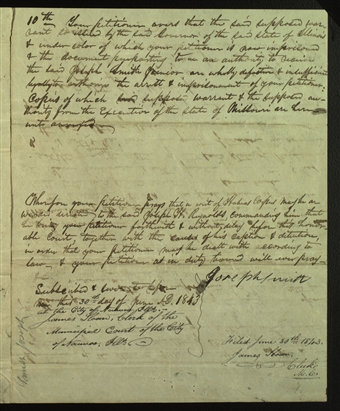 10th Your petitioner avers that the said supposed war-
rant issued by the said Governor of the said state of Illinois
& under color of which your petitioner is now imprisoned
& the document purporting to be an authority to receive
the said Joseph Smith Junior are wholly defective & insufficient
legally to authorize the arrest & imprisonment of your petitioner:
Copies of which supposed warrant & the supposed au-
thority from the Executive of the State of Missouri are here-
unto annexed
Wherefore your petitioner prays that a writ of Habeas Corpus may be a-
warded directed to the said Joseph H. Reynolds commanding him that
he bring your petitioner forthwith & without delay before this honor-
able Court, together with the causes of his caption & detention,
in order that your petitioner may be dealt with according to
law & your petitioner as in duty bound will ever pray.
Joseph Smith
Subscribed & sworn to before
me this 30th day of June A.D. 1843
at the City of Nauvoo Ills.
James Sloan, Clerk of the
Municipal Court of the City
of Nauvoo, Ills.
Filed June 30th 1843.
James Sloan
Clerk
M.C.